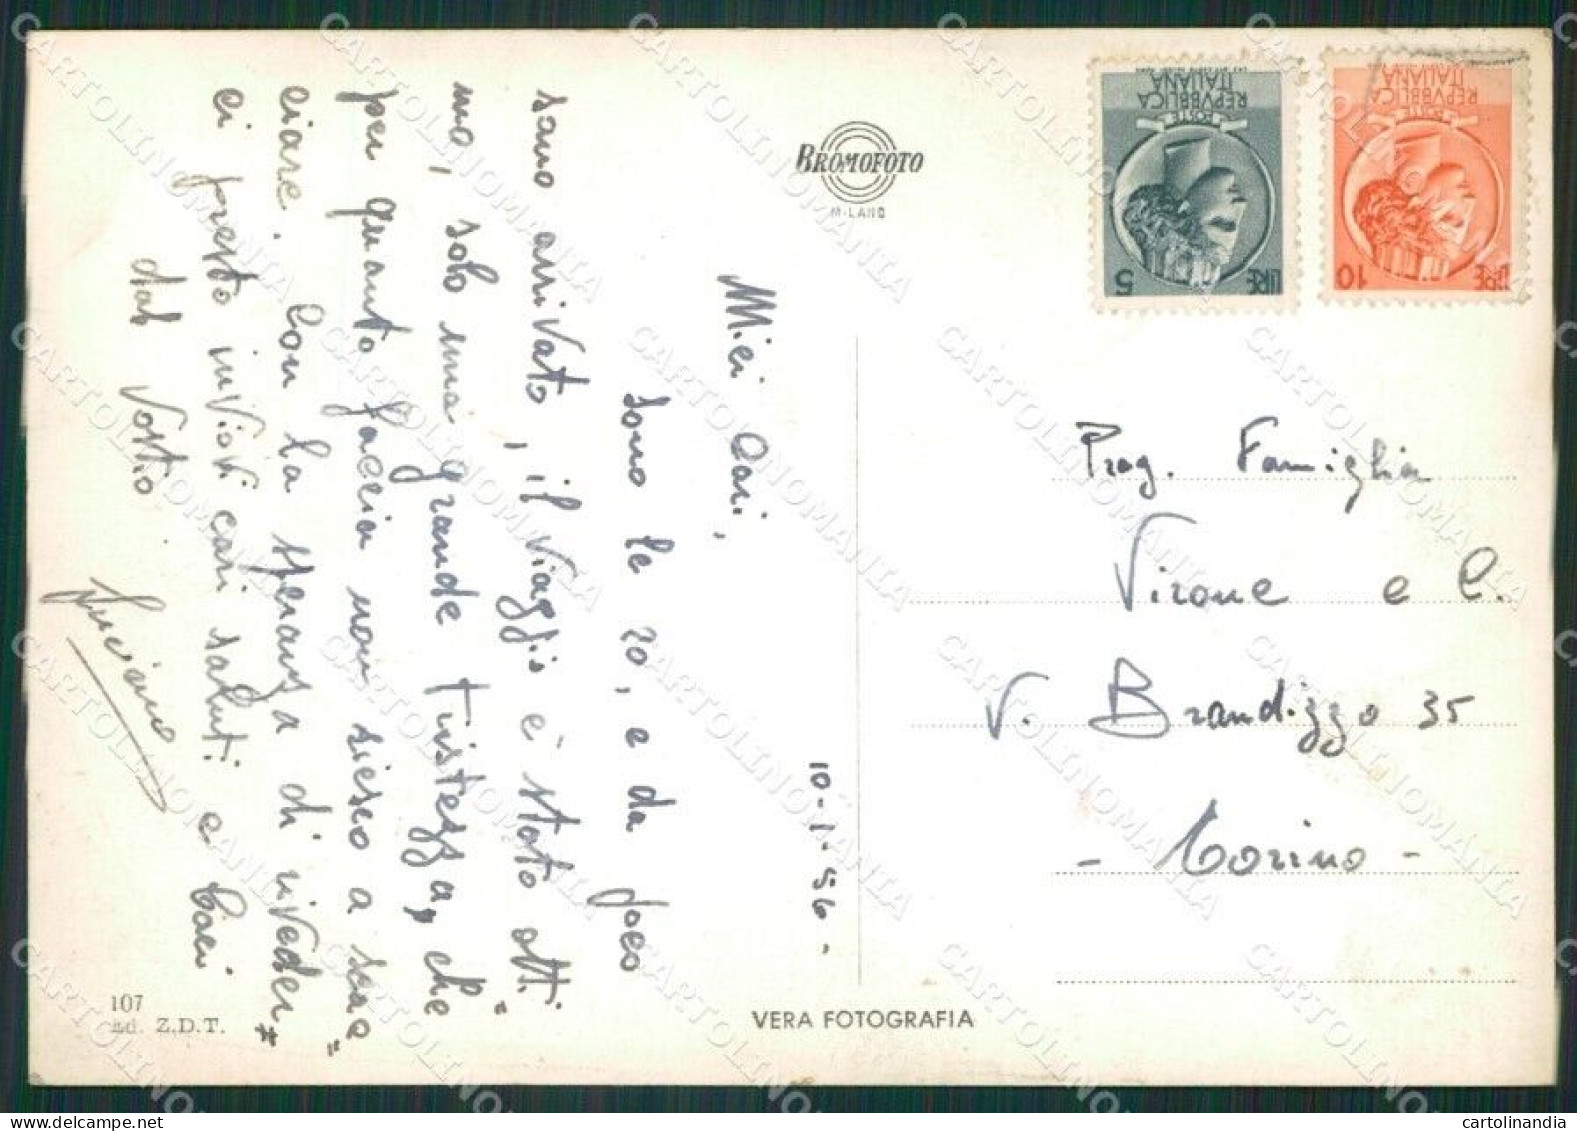 10-1-56-
Miei Cari,
sono le 20, e da poco
sono arrivato, il viaggio è stato otti"
mo, solo una grande tristezza, che
per quanto faccia non riesco a scac"
ciare. Con la speranza di riveder"
ci presto inviovi cari saluti e baci
dal Vostro
Luciano
107
Ed. Z.D.T.
BROMOFOTO
MILANO
VERA FOTOGRAFIA
POSTE
REPVBBLICA
ITALIANA
LIRE 5
POSTE
REPVBBLICA
ITALIANA
LIRE 10
Preg. Famiglia
Virone e C.
V. Brandizzo 35
- Torino -
CARTOLINOMANIA
cartolinandia